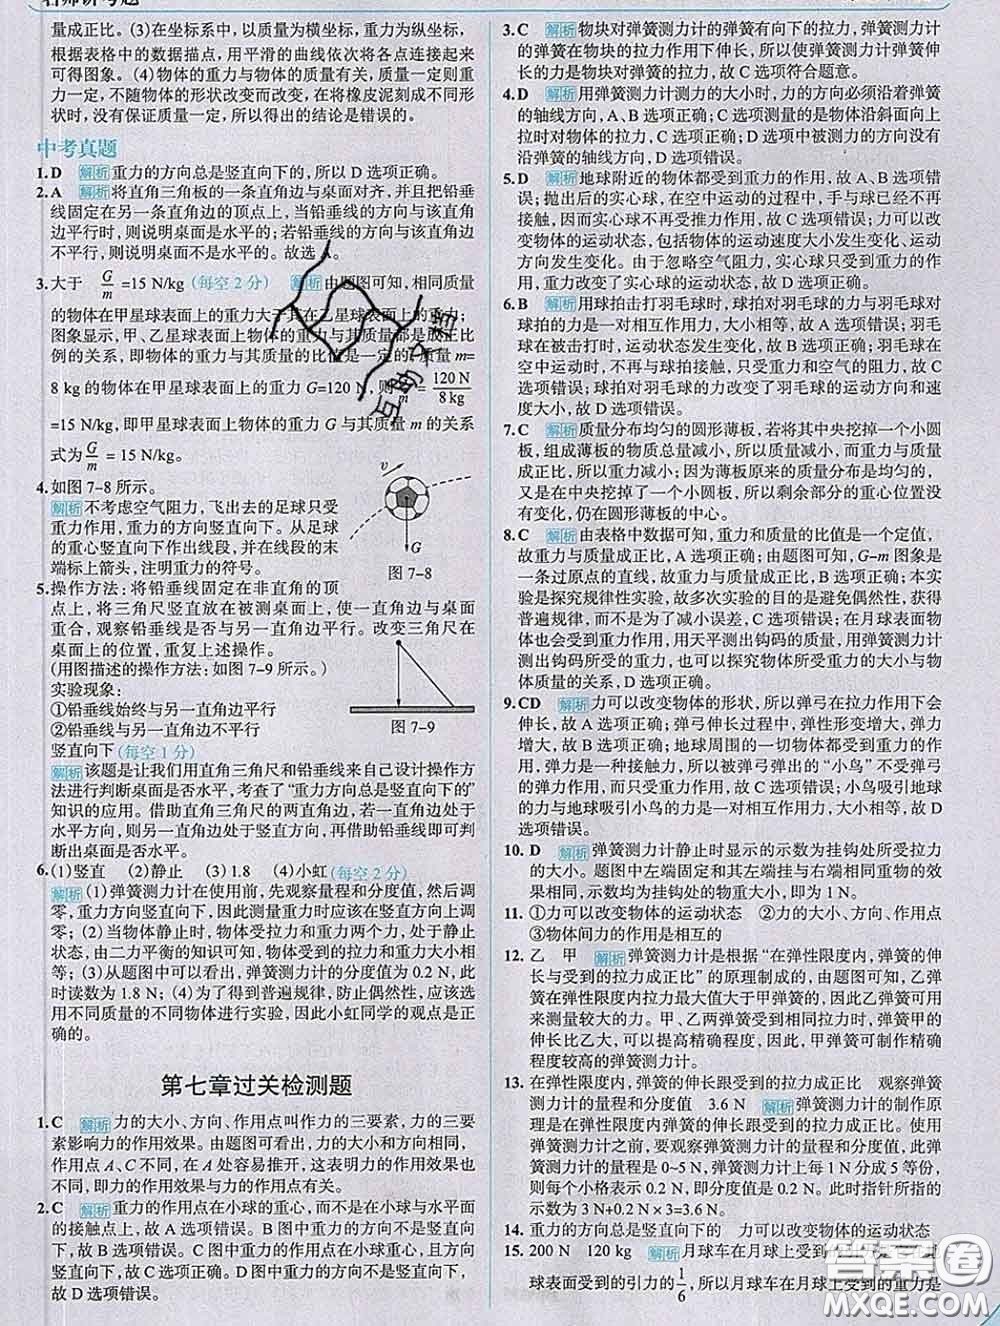 量成正比。(3)在坐标系中,以质量为横坐标,重力为纵坐标,
根据表格中的数据描点,用平滑的曲线依次将各点连接起来
可得图象。(4)物体的重力与物体的质量有关,质量一定则重
力一定,不随物体的形状改变而改变,在将橡皮泥刻成不同形
状时,没有保证质量一定,所以得出的结论是错误的。
中考真题
1.D 解析 重力的方向总是竖直向下的,所以 D 选项正确。
2.A 解析 将直角三角板的一条直角边与桌面对齐,并且把铅垂
线固定在另一条直角边的顶点上,当铅垂线的方向与该直角
边平行时,则说明桌面是水平的;若铅垂线的方向与该直角边
不平行,则说明桌面不是水平的。故选 A。
3.大于 G/m=15 N/kg (每空 2 分) 解析 由题图可知,相同质量
的物体在甲星球表面上的重力大于其在乙星球表面上的重力;
图象显示,甲、乙星球表面上物体的重力与其质量都是成正比
例的关系,即物体的重力与其质量的比值是一定的。质量 m=
8 kg 的物体在甲星球表面上的重力 G=120 N,则 G/m=120 N/8 kg
=15 N/kg,即甲星球表面上物体的重力 G 与其质量 m 的关系
式为 G/m=15 N/kg。
4.如图 7-8 所示。
解析 不考虑空气阻力,飞出去的足球只受
重力作用,重力的方向竖直向下。从足球
的重心竖直向下作出线段,并在线段的末
端标上箭头,注明重力的符号。
v
G
图 7-8
5.操作方法:将铅垂线固定在非直角的顶
点上,将三角尺竖直放在被测桌面上,使一直角边与桌面
重合,观察铅垂线是否与另一直角边平行。改变三角尺在
桌面上的位置,重复上述操作。
(用图描述的操作方法:如图 7-9 所示。)
实验现象:
①铅垂线始终与另一直角边平行
②铅垂线与另一直角边不平行
竖直向下(每空 1 分)
图 7-9
解析 该题是让我们用直角三角尺和铅垂线来自己设计操作方
法进行判断桌面是否水平,考查了“重力方向总是竖直向下的”
知识的应用。借助直角三角尺的两直角边,若一直角边处于
水平方向,则另一直角边处于竖直方向,再借助铅垂线即可判
断出桌面是否水平。
6.(1)竖直 (2)静止 (3)1.8 (4)小虹(每空 2 分)
解析 (1)弹簧测力计在使用前,先观察量程和分度值,然后调
零,重力方向竖直向下,因此测量重力时应该在竖直方向上调
零;(2)当物体静止时,物体受拉力和重力两个力,处于静止
状态,由二力平衡的知识可知,物体受到的拉力和重力大小相
等;(3)从题图中可以看出,弹簧测力计的分度值为 0.2 N,此
时读数为 1.8 N;(4)为了得到普遍规律,防止偶然性,应该选
用不同质量的不同物体进行实验,因此小虹同学的观点是正
确的。
第七章过关检测题
1.C 解析 力的大小、方向、作用点叫作力的三要素,力的三要
素影响力的作用效果。由题图可看出,力的大小和方向相同,
作用点 A、C 不同,在 A 处容易推开,这表明力的作用效果也
不同,即力的作用效果与力的作用点有关。
2.C 解析 重力的作用点在小球的重心,而不是在小球与水平面
的接触点上,故 A 选项错误。B 图中重力的方向不是竖直向
下,故 B 选项错误。C 图中重力的作用点在小球重心,且方向
竖直向下,故 C 选项正确。D 图中重力的方向不是竖直向下,
故 D 选项错误。
3.C 解析 物块对弹簧测力计的弹簧有向下的拉力,弹簧测力计
的弹簧在物块的拉力作用下伸长,所以使弹簧测力计弹簧伸
长的力是物块对弹簧的拉力,故 C 选项符合题意。
4.D 解析 用弹簧测力计测力的大小时,力的方向必须沿着弹簧
的轴线方向,A、B 选项正确;C 选项测量的是物体沿斜面向上
拉时对物体的拉力,C 选项正确;D 选项中被测力的方向没有
沿弹簧的轴线方向,D 选项错误。
5.D 解析 地球附近的物体都受到重力的作用,故 A、B 选项错
误;抛出后的实心球,在空中运动的过程中,手与球已经不再
接触,因而实心球不再受推力作用,故 C 选项错误;力可以改
变物体的运动状态,包括物体的运动速度大小发生变化、运动
方向发生变化。由于忽略空气阻力,实心球只受到重力的作
用,重力改变了实心球的运动状态,故 D 选项正确。
6.B 解析 用球拍击打羽毛球时,球拍对羽毛球的力与羽毛球对
球拍的力是一对相互作用力,大小相等,故 A 选项错误;羽毛
球在被击打时,运动状态发生变化,故 B 选项正确;羽毛球在
空中运动时,不再与球拍接触,只受重力和空气的阻力,故 C
选项错误;球拍对羽毛球的力改变了羽毛球的运动方向和速
度大小,故 D 选项错误。
7.C 解析 质量分布均匀的圆形薄板,若将其中央挖掉一个小圆
板,组成薄板的物质总量减小,所以质量减小,而重力与质量
成正比,所以重力减小;因为薄板原来的质量分布是均匀的,
又是在中央挖掉了一个小圆板,所以剩余部分的重心位置没
有变化,仍在圆形薄板的中心。
8.C 解析 由表格中数据可知,重力和质量的比值是一个定值,
故重力与质量成正比,A 选项正确;由题图可知,G-m 图象是
一条过原点的直线,故重力与质量成正比,B 选项正确;本实
验是探究规律性实验,故多次实验的目的是避免偶然性,获得
普遍规律,而不是为了减小误差,C 选项错误;在月球表面物
体也会受到重力作用,用天平测出钩码的质量,用弹簧测力计
测出钩码所受的重力,也可以探究物体所受重力的大小与物
体质量的关系,D 选项正确。
9.CD 解析 力可以改变物体的形状,所以弹弓在拉力作用下会
伸长,故 A 选项正确;弹弓伸长过程中,弹性形变增大,弹力
增大,故 B 选项正确;地球周围的一切物体都受到重力的作
用,所以被弹弓弹出的“小鸟”不受弹弓的
弹力作用,但受重力,故 C 选项错误;小鸟吸引地球
的力与地球吸引小鸟的力是一对相互作用力,大小相等,故 D
选项错误。
10.D 解析 弹簧测力计静止时显示的示数为挂钩处所受拉力
的大小。题图中左端固定和其左端挂与右端相同重物的效
果相同,示数均为挂钩处的物重大小,即为 1 N。
11.①力可以改变物体的运动状态 ②力的大小、方向、作用点
③物体间力的作用是相互的
12.乙 甲 解析 弹簧测力计是根据“在弹性限度内,弹簧的伸
长与受到的拉力成正比”的原理制成的,由题图可知,乙弹
簧在弹性限度内拉力最大值大于甲弹簧的,因此乙弹簧可用
来测量大的力。甲、乙两弹簧受到相同拉力时,甲弹簧的伸
长大,可以提高精确程度,因此,甲弹簧可制作精确
程度较高的弹簧测力计。
13.在弹性限度内,弹簧的伸长跟受到的拉力成正比 观察弹簧
测力计的量程和分度值 3.6 N 解析 弹簧测力计的制作原
理是在弹性限度内,弹簧的伸长跟受到的拉力成正比。使用
弹簧测力计之前,要观察弹簧测力计的量程和分度值,此弹
簧测力计的量程是 0~5 N,每 1 N 分成 5 等份,
则每个小格表示 0.2 N,即分度值是 0.2 N。此时指针所指的
示数为 3 N+0.2 N×3=3.6 N。
14.重力的方向总是竖直向下的 力可以改变物体的运动状态
15.200 N 120 kg 解析 月球车在月球上受到的
球表面受到的引力的 1/6,所以月球车在月球上受到的重力是
答案圈
MXQE.COM